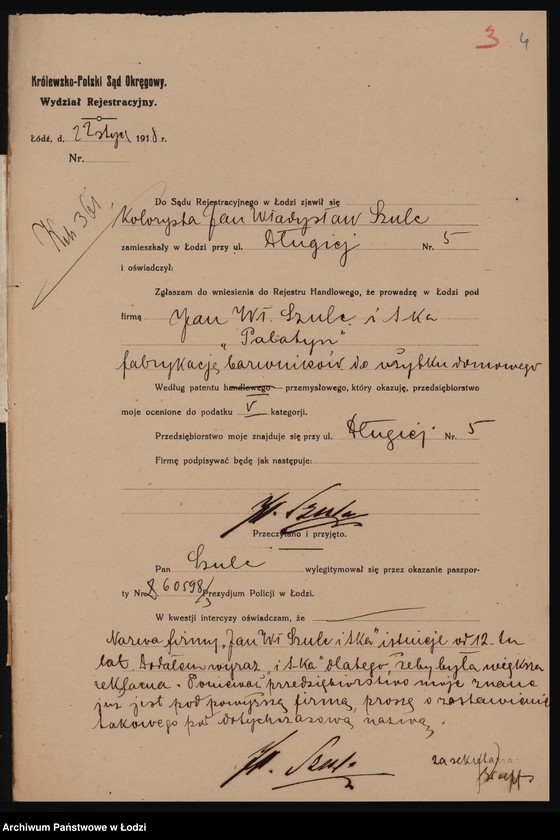 3 4
Królewsko-Polski Sąd Okręgowy.
Wydział Rejestracyjny.
Łódź, d. 22 stycz 1918 r.
Nr.
Do Sądu Rejestracyjnego w Łodzi zjawił się
Kolorysta Jan Władysław Szulc
zamieszkały w Łodzi przy ul. Długiej Nr. 5
i oświadczył:
Zgłaszam do wniesienia do Rejestru Handlowego, że prowadzę w Łodzi pod
firmą Jan Wł. Szulc i S-ka
„Palatyn"
fabrykację barwników do użytku domowego
Według patentu handlowego przemysłowego, który okazuję, przedsiębiorstwo
moje ocenione do podatku V kategorji.
Przedsiębiorstwo moje znajduje się przy ul. Długiej Nr. 5
Firmę podpisywać będę jak następuje:
Szulc
Przeczytano i przyjęto.
Pan Szulc wylegitymował się przez okazanie paszpor-
ty Nr. 60598/3 Prezydjum Policji w Łodzi.
W kwestji intercyzy oświadczam, że
Nazwa firmy „Jan Wł Szulc i S-ka" istnieje od 12-tu
lat. Dodałem wyraz „i S-ka" dlatego żeby była większa
reklama. Ponieważ przedsiębiorstwo moje znane
już jest pod powyższą firmą, proszę o zostawienie
takowego pod dotychczasową nazwą.
Szulc
za sekretarza
Archiwum Państwowe w Łodzi